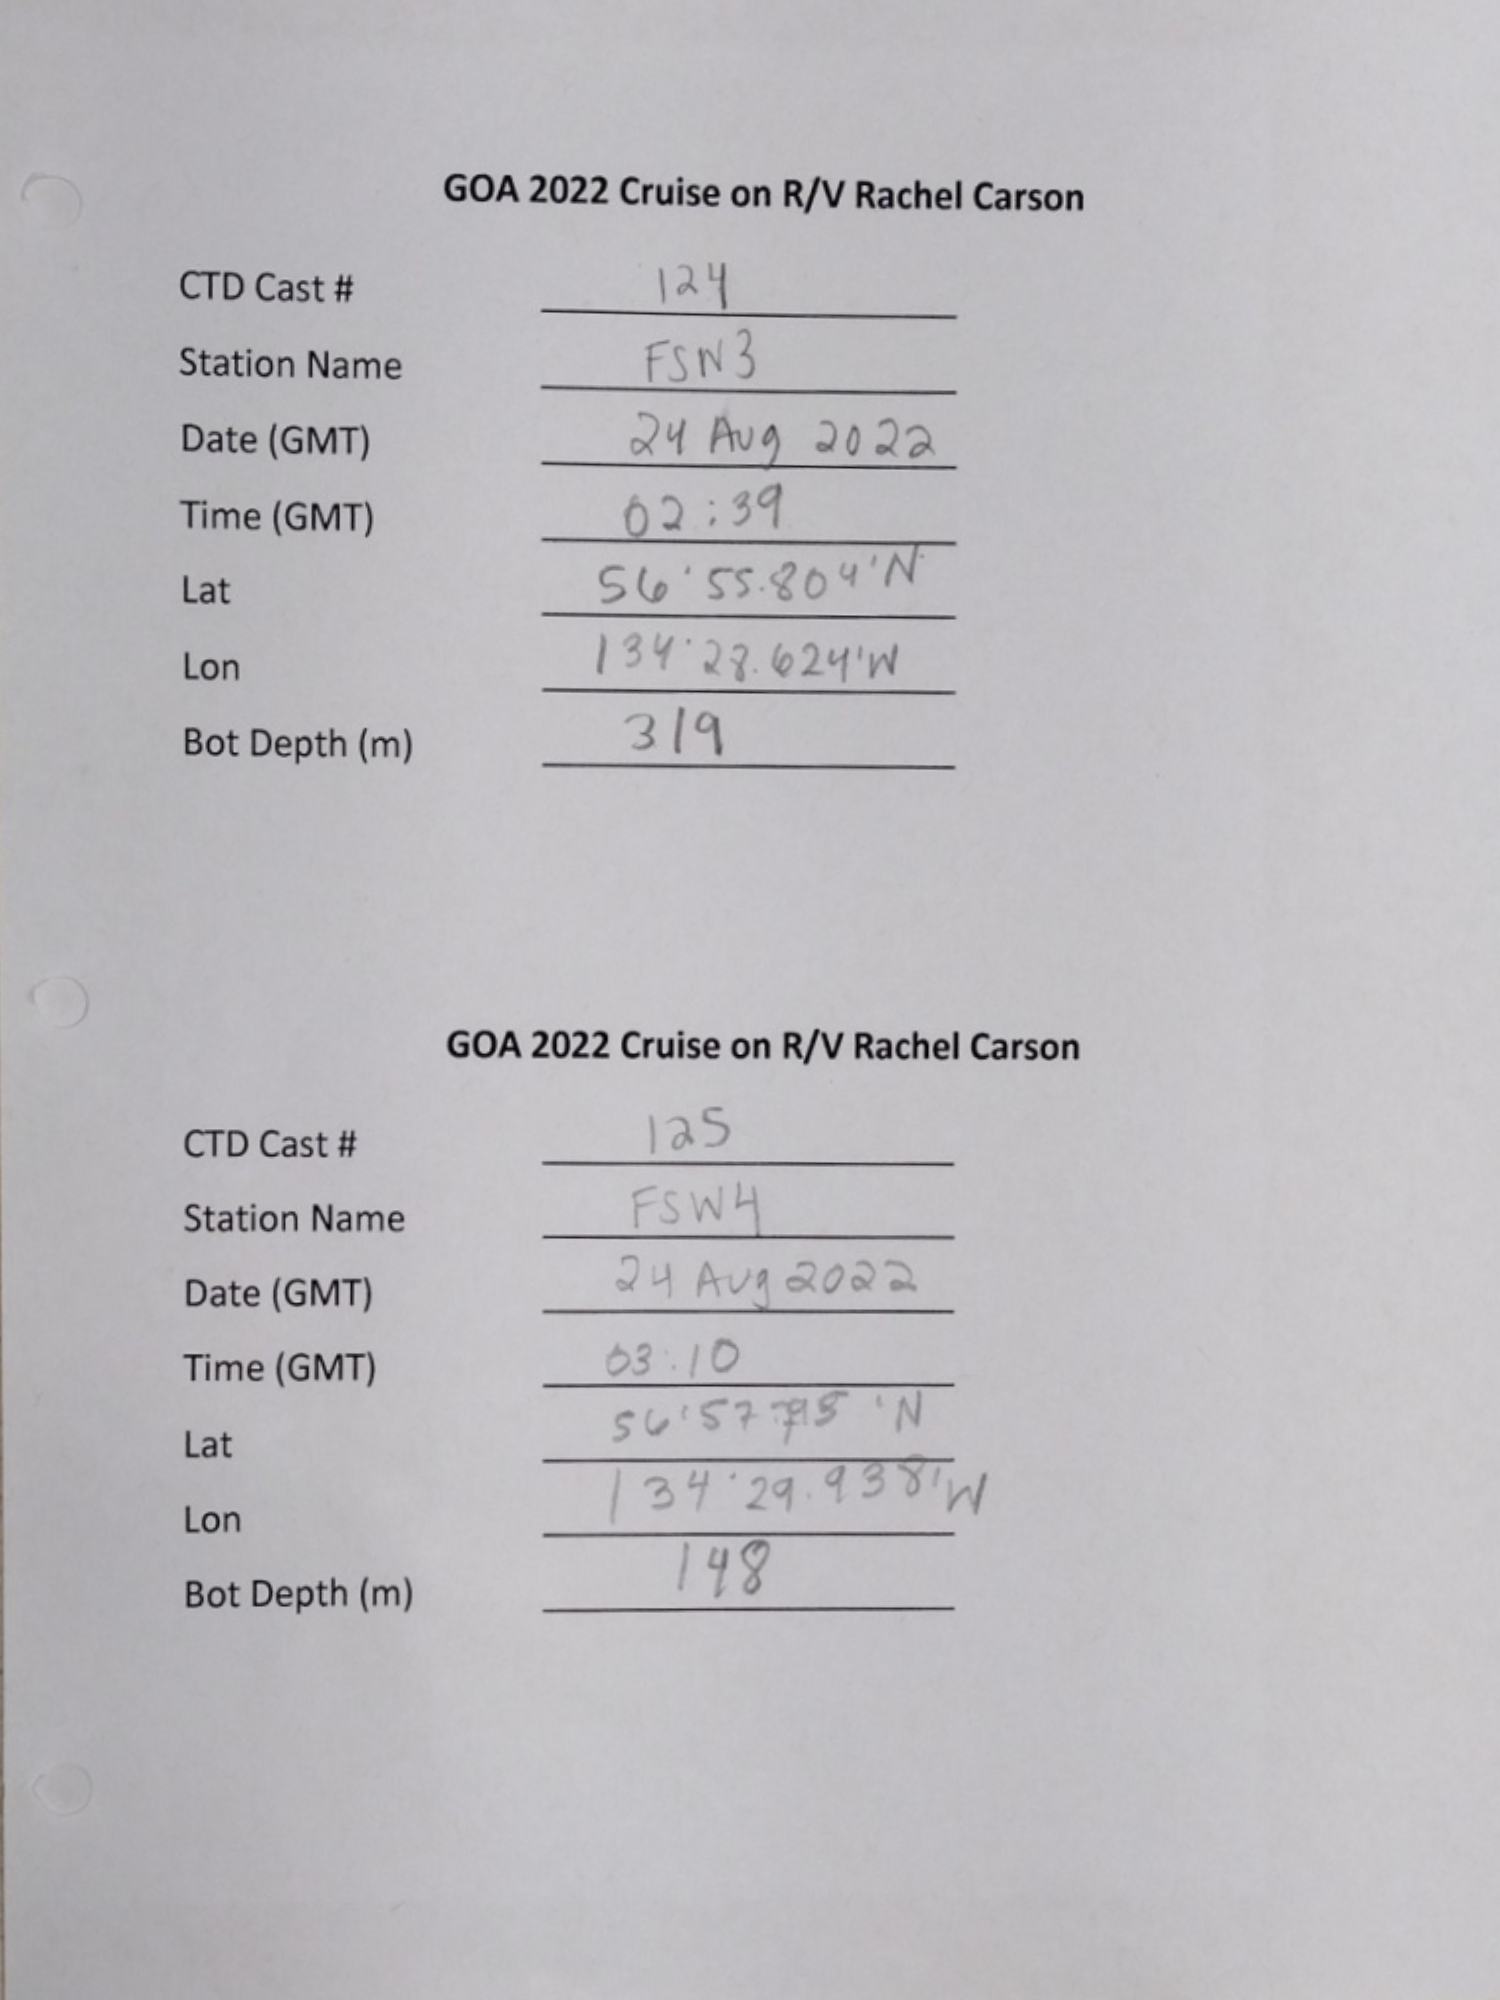 GOA 2022 Cruise on R/V Rachel Carson
CTD Cast # 124
Station Name FSW3
Date (GMT) 24 Aug 2022
Time (GMT) 02:39
Lat 56°55.804'N
Lon 134°28.624'W
Bot Depth (m) 319
GOA 2022 Cruise on R/V Rachel Carson
CTD Cast # 125
Station Name FSW4
Date (GMT) 24 Aug 2022
Time (GMT) 03:10
Lat
Lon 134°29.938'W
Bot Depth (m) 148